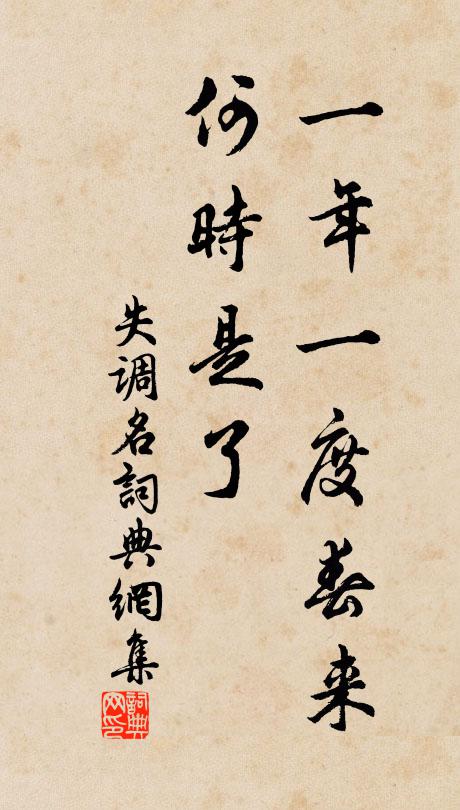 一年一度春来
何時是了
失调名詞典網集
詞典
网印